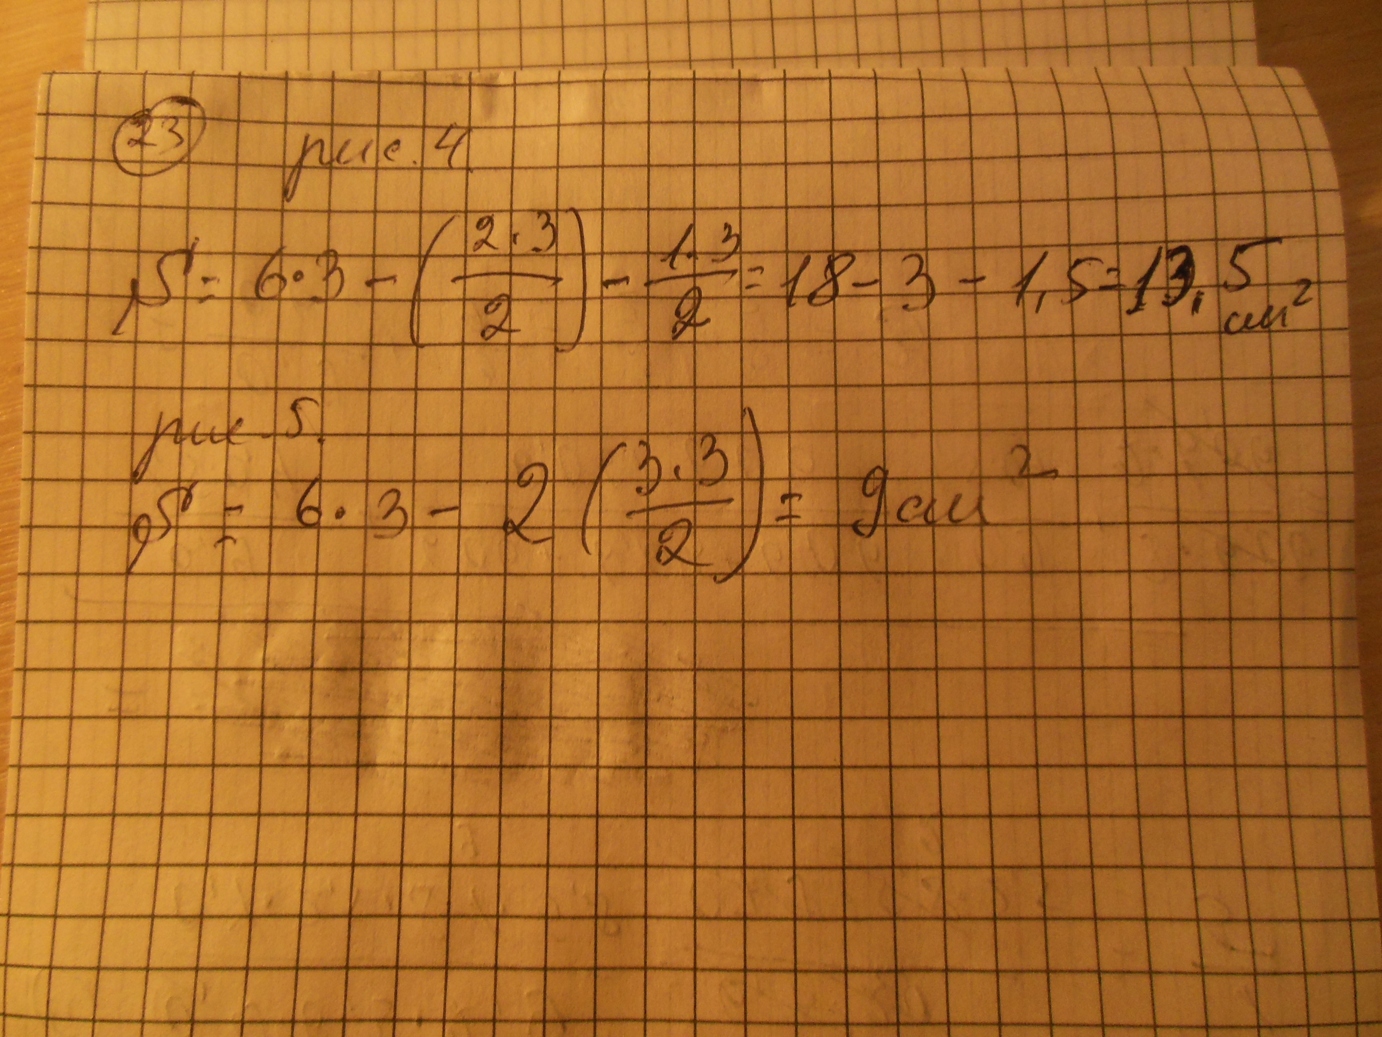 23 рис. 4
S = 6·3 - (2·3/2) - 1·3/2 = 18 - 3 - 1,5 = 13,5 см²
рис. 5.
S = 6·3 - 2(3·3/2) = 9 см²